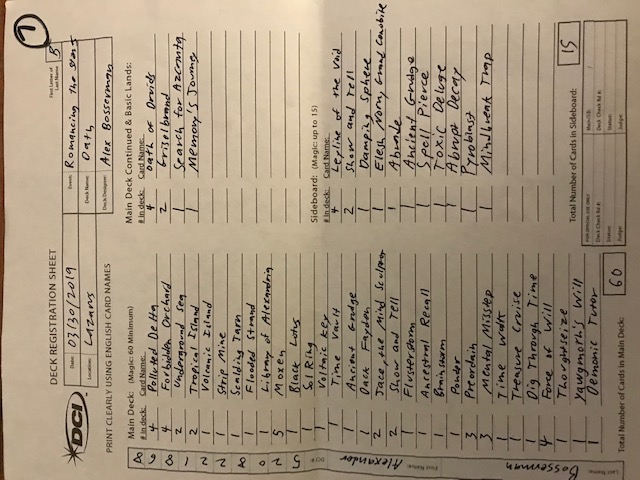 7
DECK REGISTRATION SHEET
First Letter of Last Name B
DCI
Date: 03/30/2019
Event: Romancing the Stones
Location: Lazarus
Deck Name: Oath
Deck Designer: Alex Bosserman
PRINT CLEARLY USING ENGLISH CARD NAMES
Main Deck: (Magic: 60 Minimum)
# in deck: Card Name:
4 Polluted Delta
4 Forbidden Orchard
2 Underground Sea
2 Tropical Island
1 Volcanic Island
1 Strip Mine
1 Scalding Tarn
1 Flooded Strand
1 Library of Alexandria
5 Moxen
1 Black Lotus
1 Sol Ring
1 Voltaic Key
1 Time Vault
1 Ancient Grudge
1 Dack Fayden
2 Jace, the Mind Sculptor
2 Show and Tell
1 Flusterstorm
1 Ancestral Recall
1 Brainstorm
1 Ponder
3 Preordain
3 Mental Misstep
1 Time Walk
1 Treasure Cruise
1 Dig Through Time
4 Force of Will
1 Thoughtseize
1 Yawgmoth's Will
1 Demonic Tutor
Total Number of Cards in Main Deck: 60
Main Deck Continued & Basic Lands:
# in deck: Card Name:
4 Oath of Druids
2 Griselbrand
1 Search for Azcanta
1 Memory's Journey
Sideboard: (Magic: up to 15)
# in deck: Card Name:
4 Leyline of the Void
2 Show and Tell
1 Damping Sphere
1 Elesh Norn, Grand Cenobite
1 Abrade
1 Ancient Grudge
1 Spell Pierce
1 Toxic Deluge
1 Abrupt Decay
1 Pyroblast
1 Mindbreak Trap
Total Number of Cards in Sideboard: 15
FOR OFFICIAL USE ONLY
Main/SB:
Deck Check Rd #:
Deck Check Rd #:
Status:
Status:
Judge:
Judge:
Last Name: Bosserman
First Name: Alexander
DCI#: 5208221868